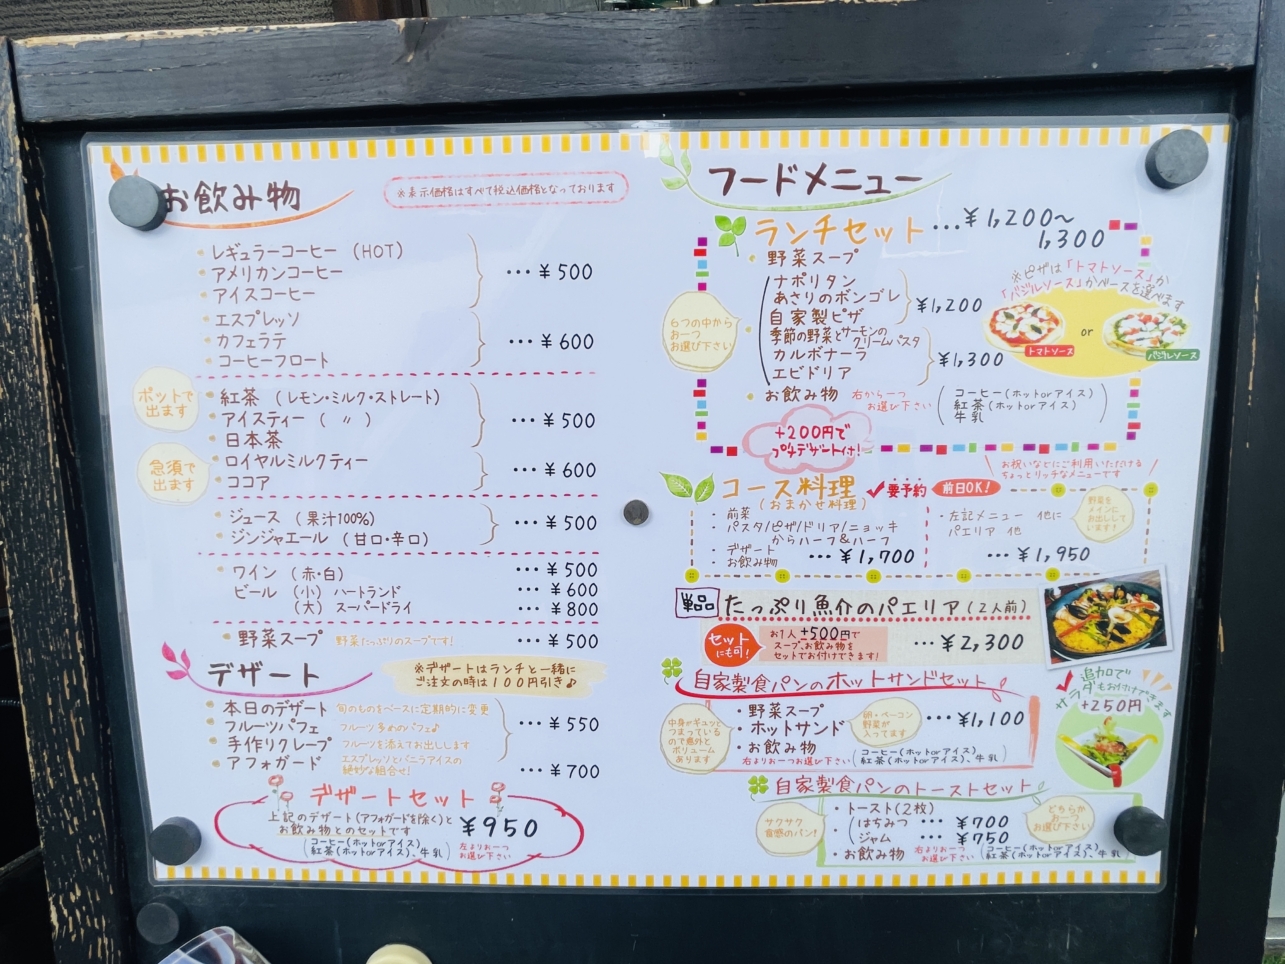 お飲み物
※表示価格はすべて税込価格となっております
レギュラーコーヒー (HOT)
アメリカンコーヒー
アイスコーヒー
… ¥500
エスプレッソ
カフェラテ
コーヒーフロート
… ¥600
ポットで
出ます
紅茶 (レモン・ミルク・ストレート)
アイスティー ( 〃 )
日本茶
… ¥500
急須で
出ます
ロイヤルミルクティー
ココア
… ¥600
ジュース (果汁100%)
ジンジャエール (甘口・辛口)
… ¥500
ワイン (赤・白) … ¥500
ビール (小) ハートランド … ¥600
(大) スーパードライ … ¥800
野菜スープ 野菜たっぷりのスープです! … ¥500
デザート
※デザートはランチと一緒に
ご注文の時は100円引き♪
本日のデザート 旬のものをベースに定期的に変更
フルーツパフェ フルーツ多めのパフェ♪
手作りクレープ フルーツを添えてお出しします
… ¥550
アフォガード エスプレッソとバニラアイスの
絶妙な組合せ!
… ¥700
デザートセット
上記のデザート(アフォガードを除く)と
お飲み物とのセットです
¥950
(コーヒー(ホットorアイス)
紅茶(ホットorアイス)、牛乳)
左よりお一つ
お選び下さい
フードメニュー
ランチセット … ¥1,200〜
1,300
野菜スープ
6つの中から
お一つ
お選び下さい
ナポリタン
あさりのボンゴレ
自家製ピザ
¥1,200
季節の野菜とサーモンの
クリームパスタ
カルボナーラ
エビドリア
¥1,300
※ピザは「トマトソース」か
「バジルソース」かベースを選べます
or
トマトソース
バジルソース
お飲み物 右から一つ
お選び下さい
(コーヒー(ホットorアイス)
紅茶(ホットorアイス)
牛乳)
+200円で
プチデザート付!
コース料理
(おまかせ料理)
要予約
前日OK!
お祝いなどにご利用いただける
ちょっとリッチなメニューです
・前菜
・パスタ/ピザ/ドリア/ニョッキ
からハーフ&ハーフ
・デザート
お飲み物 … ¥1,700
・左記メニュー 他に
パエリア 他
野菜を
メインに
お出しして
います!
… ¥1,950
単品 たっぷり魚介のパエリア(2人前)
セット
にも可!
お1人+500円で
スープ、お飲み物を
セットでお付けできます!
… ¥2,300
自家製食パンのホットサンドセット
中身がギュッと
つまっている
ので意外と
ボリューム
あります
・野菜スープ
・ホットサンド
卵・ベーコン
野菜が
入ってます
… ¥1,100
・お飲み物
右よりお一つお選び下さい
(コーヒー(ホットorアイス)
紅茶(ホットorアイス)、牛乳)
追加で
サラダもお付けできます
+250円
自家製食パンのトーストセット
サクサク
食感のパン!
・トースト(2枚)
はちみつ … ¥700
ジャム … ¥750
どちらか
お一つ
お選び下さい
・お飲み物 右よりお一つ
お選び下さい
(コーヒー(ホットorアイス)
紅茶(ホットorアイス)、牛乳